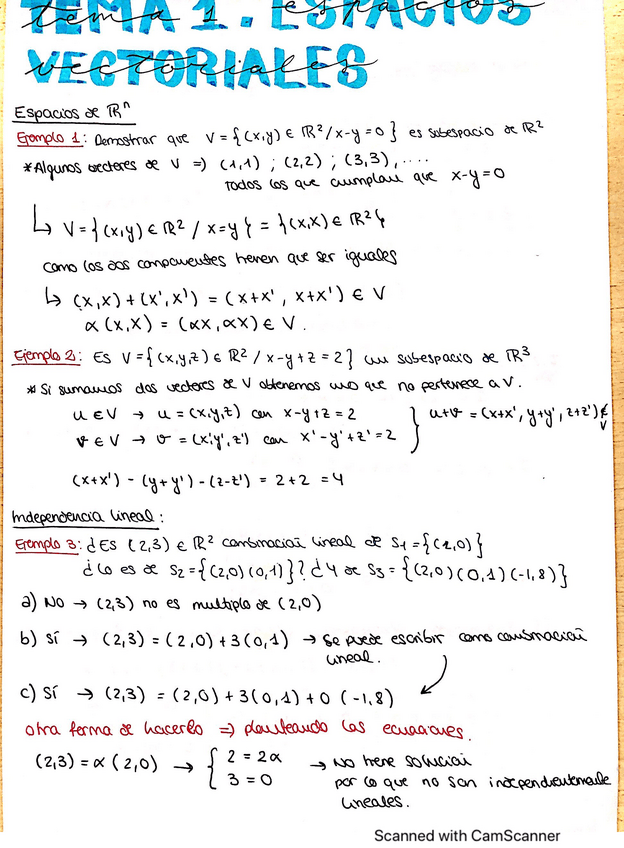 TEMA 1. ESPACIOS
tema 1. espacios
VECTORIALES
vectoriales
Espacios de ℝⁿ
Ejemplo 1: Demostrar que V = {(x,y) ∈ ℝ² / x-y = 0} es subespacio de ℝ²
*Algunos vectores de V => (1,1) ; (2,2) ; (3,3), ....
Todos los que cumplan que x-y=0
↳ V = {(x,y) ∈ ℝ² / x=y} = {(x,x) ∈ ℝ²}
como los dos componentes tienen que ser iguales
↳ (x,x) + (x',x') = (x+x', x+x') ∈ V
α(x,x) = (αx, αx) ∈ V.
Ejemplo 2: Es V = {(x,y,z) ∈ ℝ² / x-y+z = 2} un subespacio de ℝ³
* Si sumamos dos vectores de V obtenemos uno que no pertenece a V.
u ∈ V → u = (x,y,z) con x-y+z = 2
v ∈ V → v = (x',y',z') con x'-y'+z' = 2 } u+v = (x+x', y+y', z+z') ∉ V
(x+x') - (y+y') - (z-z') = 2+2 = 4
Independencia lineal:
Ejemplo 3: ¿Es (2,3) ∈ ℝ² combinación lineal de S1 = {(2,0)}
¿Lo es de S2 = {(2,0)(0,1)}? ¿Y de S3 = {(2,0)(0,1)(-1,8)}
a) No → (2,3) no es multiplo de (2,0)
b) Sí → (2,3) = (2,0) + 3(0,1) → Se puede escribir como combinación
lineal.
c) Sí → (2,3) = (2,0) + 3(0,1) + 0 (-1,8)
otra forma de hacerlo => planteando las ecuaciones.
(2,3) = α (2,0) → { 2 = 2α → No tiene solución
3 = 0 por lo que no son independientemente
lineales.
Scanned with CamScanner